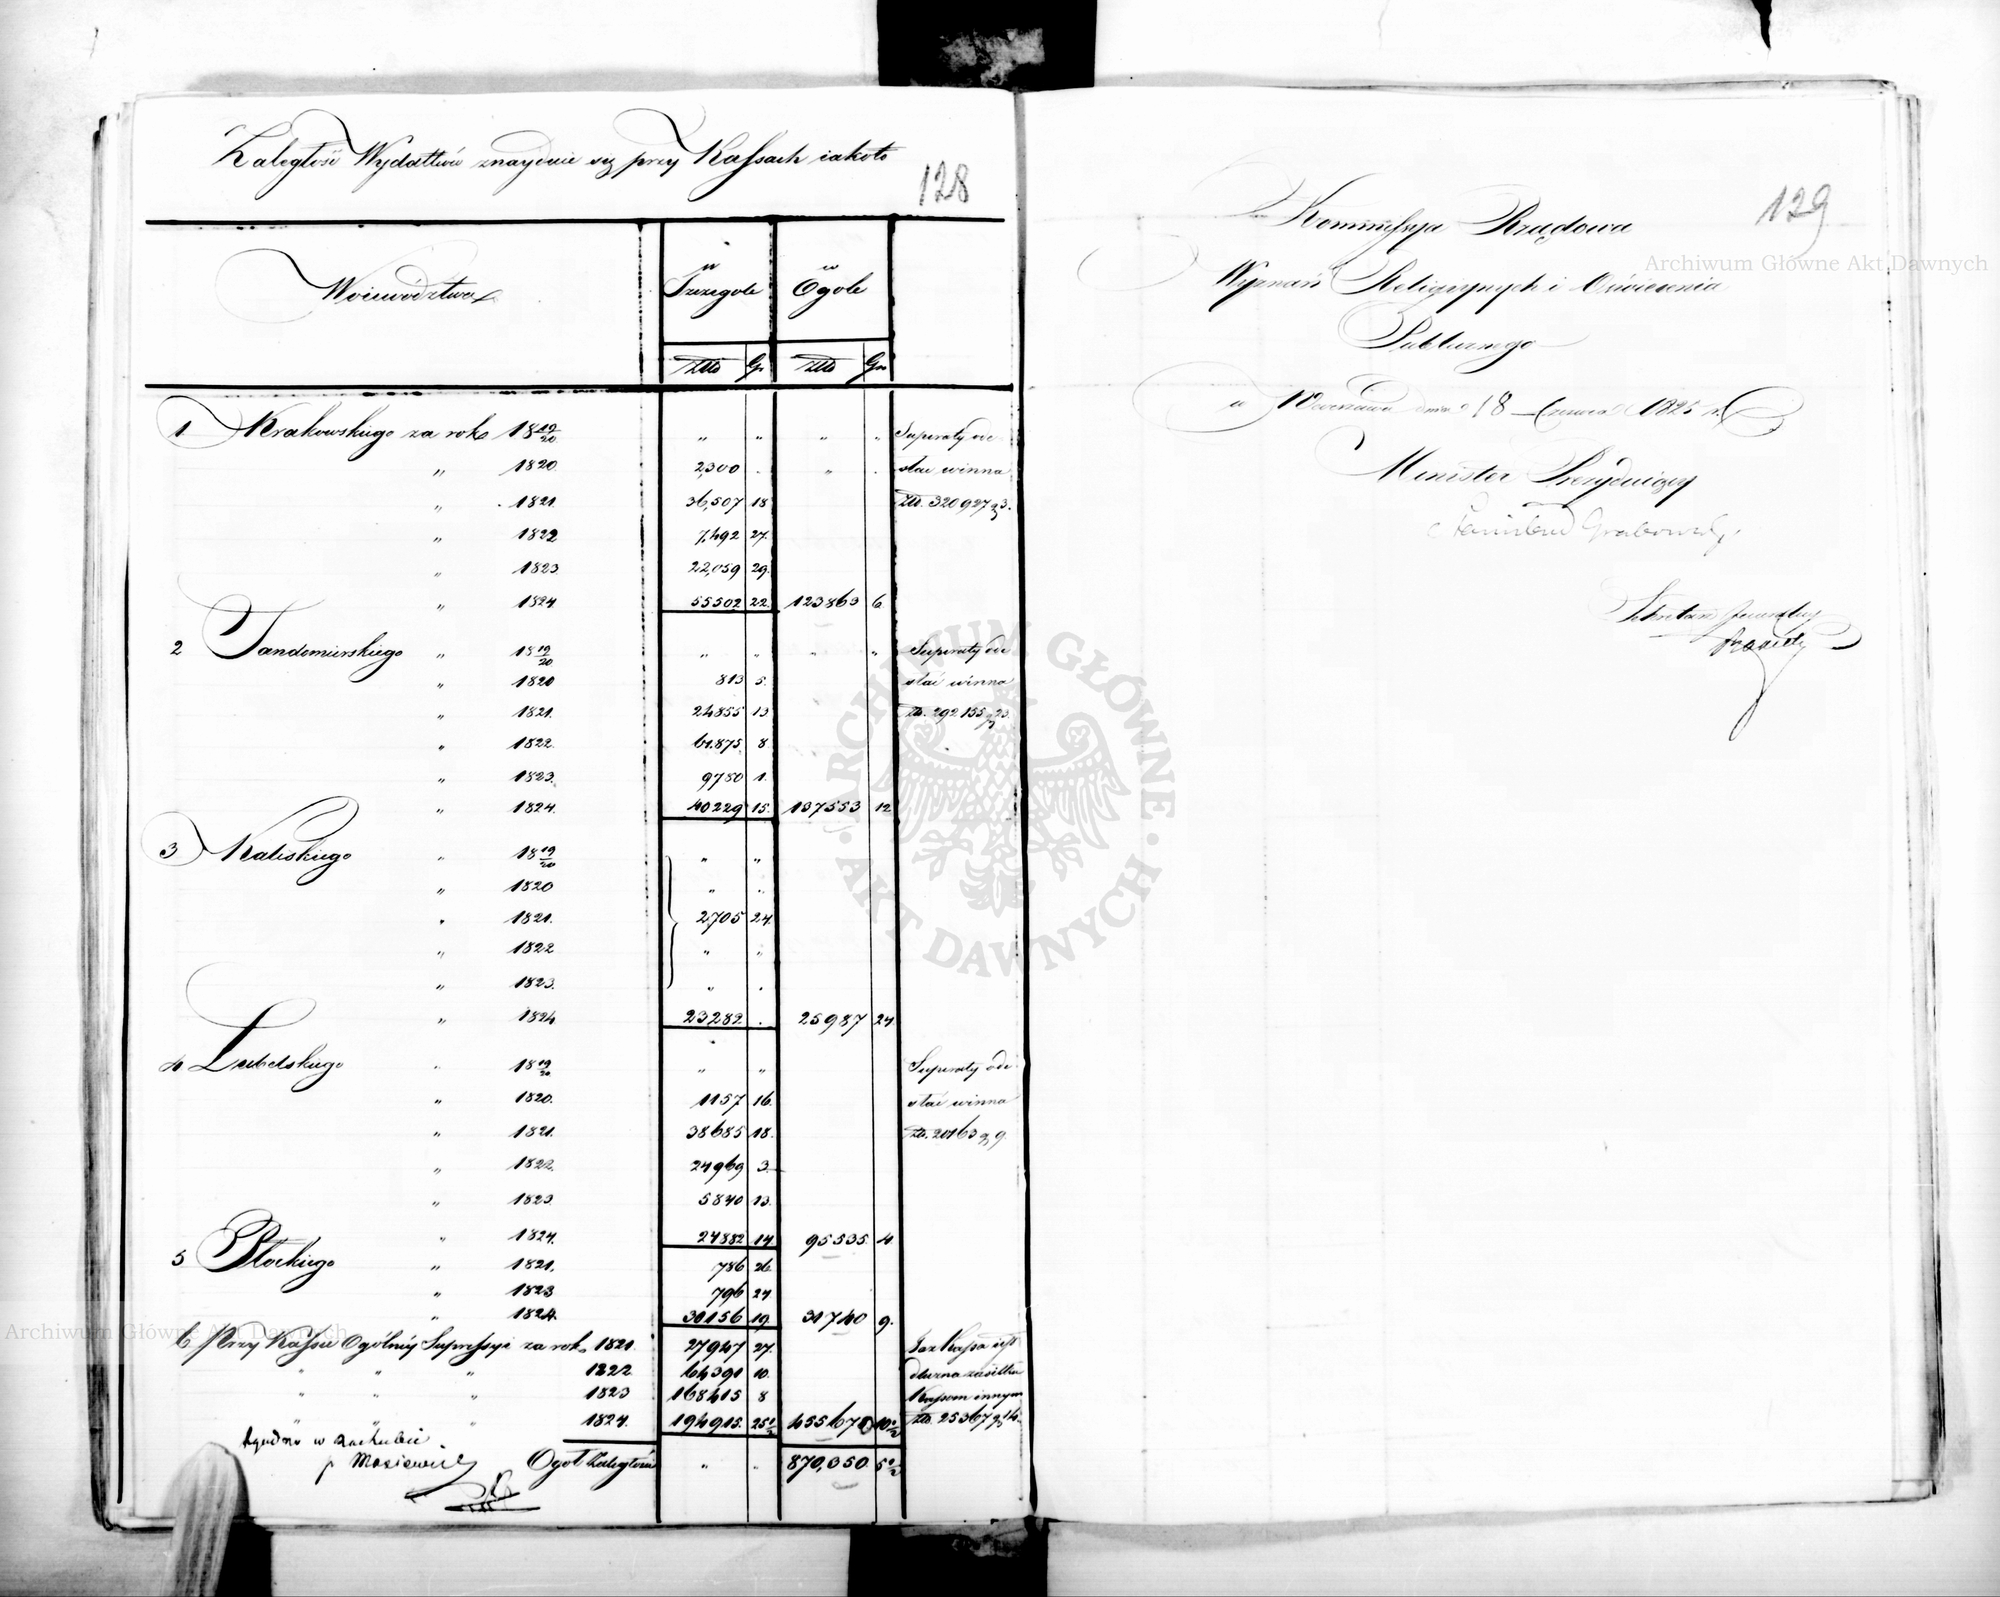 Zaległość Wydatków znayduie się przy Kassach iakoto
128
Woiewodztwa
w Szczególe
w Ogóle
Złto Gr. Złto Gr.
1 Krakowskiego za rok 18 19/20 " " " " Superaty ode
" 1820. 2,300 . " . słać winna
" 1821. 36,507 18 Złt. 320927 g 3.
" 1822 7,492 27.
" 1823 22,059 29.
" 1824 55502 22. 123863 6.
2 Sandomirskiego " 18 19/20 " " " " Superaty ode
" 1820 813 5. słać winna
" 1821. 24855 13 Zł. 292155 g 23.
" 1822. 61.875 8.
" 1823. 9780 1.
" 1824. 40229 15. 137553 12
3 Kaliskiego " 18 19/20 " "
" 1820 " "
" 1821. 2,705 24.
" 1822 " "
" 1823. " "
" 1824 23282 . 25987 24.
4 Lubelskiego " 18 19/20 " " Superaty ode
" 1820. 1157 16. słać winna
" 1821. 38685 18. Złt. 20163 g 9.
" 1822. 24969 3.
" 1823. 5840 13.
" 1824. 24882 14. 95535 4.
5 Płockiego " 1821. 786 26.
" 1823 796 24
" 1824. 30156 19. 31740 9.
6 Przy Kassie Ogólney Supressyi za rok 1821. 27947 27. Taż Kassa iest
" " " 1822. 64391 10. dłużna zasiłku
" " " 1823 168415 8 Kassom innym
" " " 1824. 194915. 25 1/2 455670 10 1/2 Złt. 25367 g 14.
Zgodno w rachubie
Ogół Zaległości " " 870,350 5 1/2
129
Kommissya Rządowa
Wyznań Religiynych i Oświecenia
Publicznego
w Warszawie dnia 18 Czerwca 1825 r.
Minister Prezyduiący
Stanisław Grabowski
Sekretarz Jeneralny
Archiwum Główne Akt Dawnych
Archiwum Główne Akt Dawnych
ARCHIWUM GŁÓWNE · AKT DAWNYCH ·